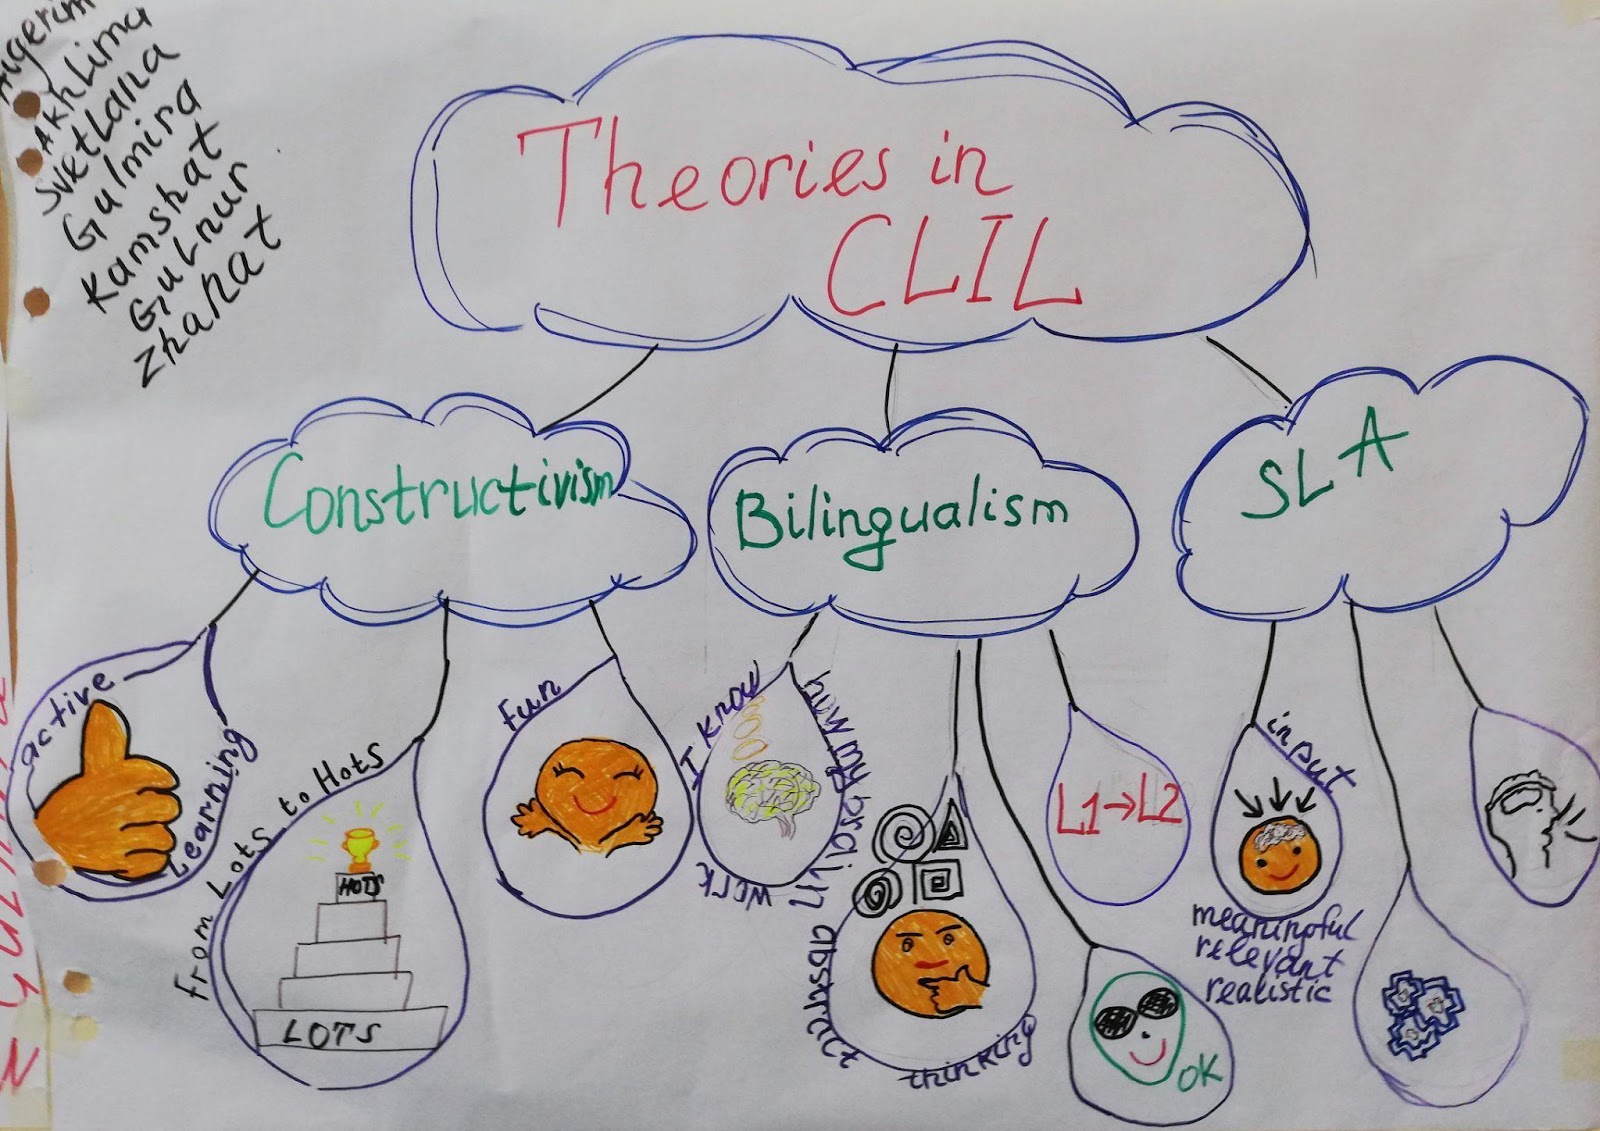 Akhlima
Svetlana
Gulmira
Kamshat
Gulnur
Zhanat
Theories in
CLIL
Constructivism
Bilingualism
SLA
active
Learning
From Lots to Hots
HOTS
LOTS
Fun
I know
how my brain
work
abstract
thinking
L1→L2
OK
input
meaningful
relevant
realistic